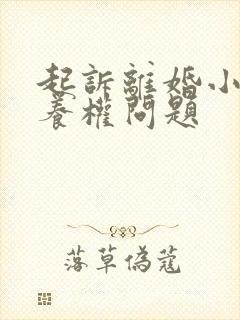 起訴離婚小
養權問題
落草偽蔻